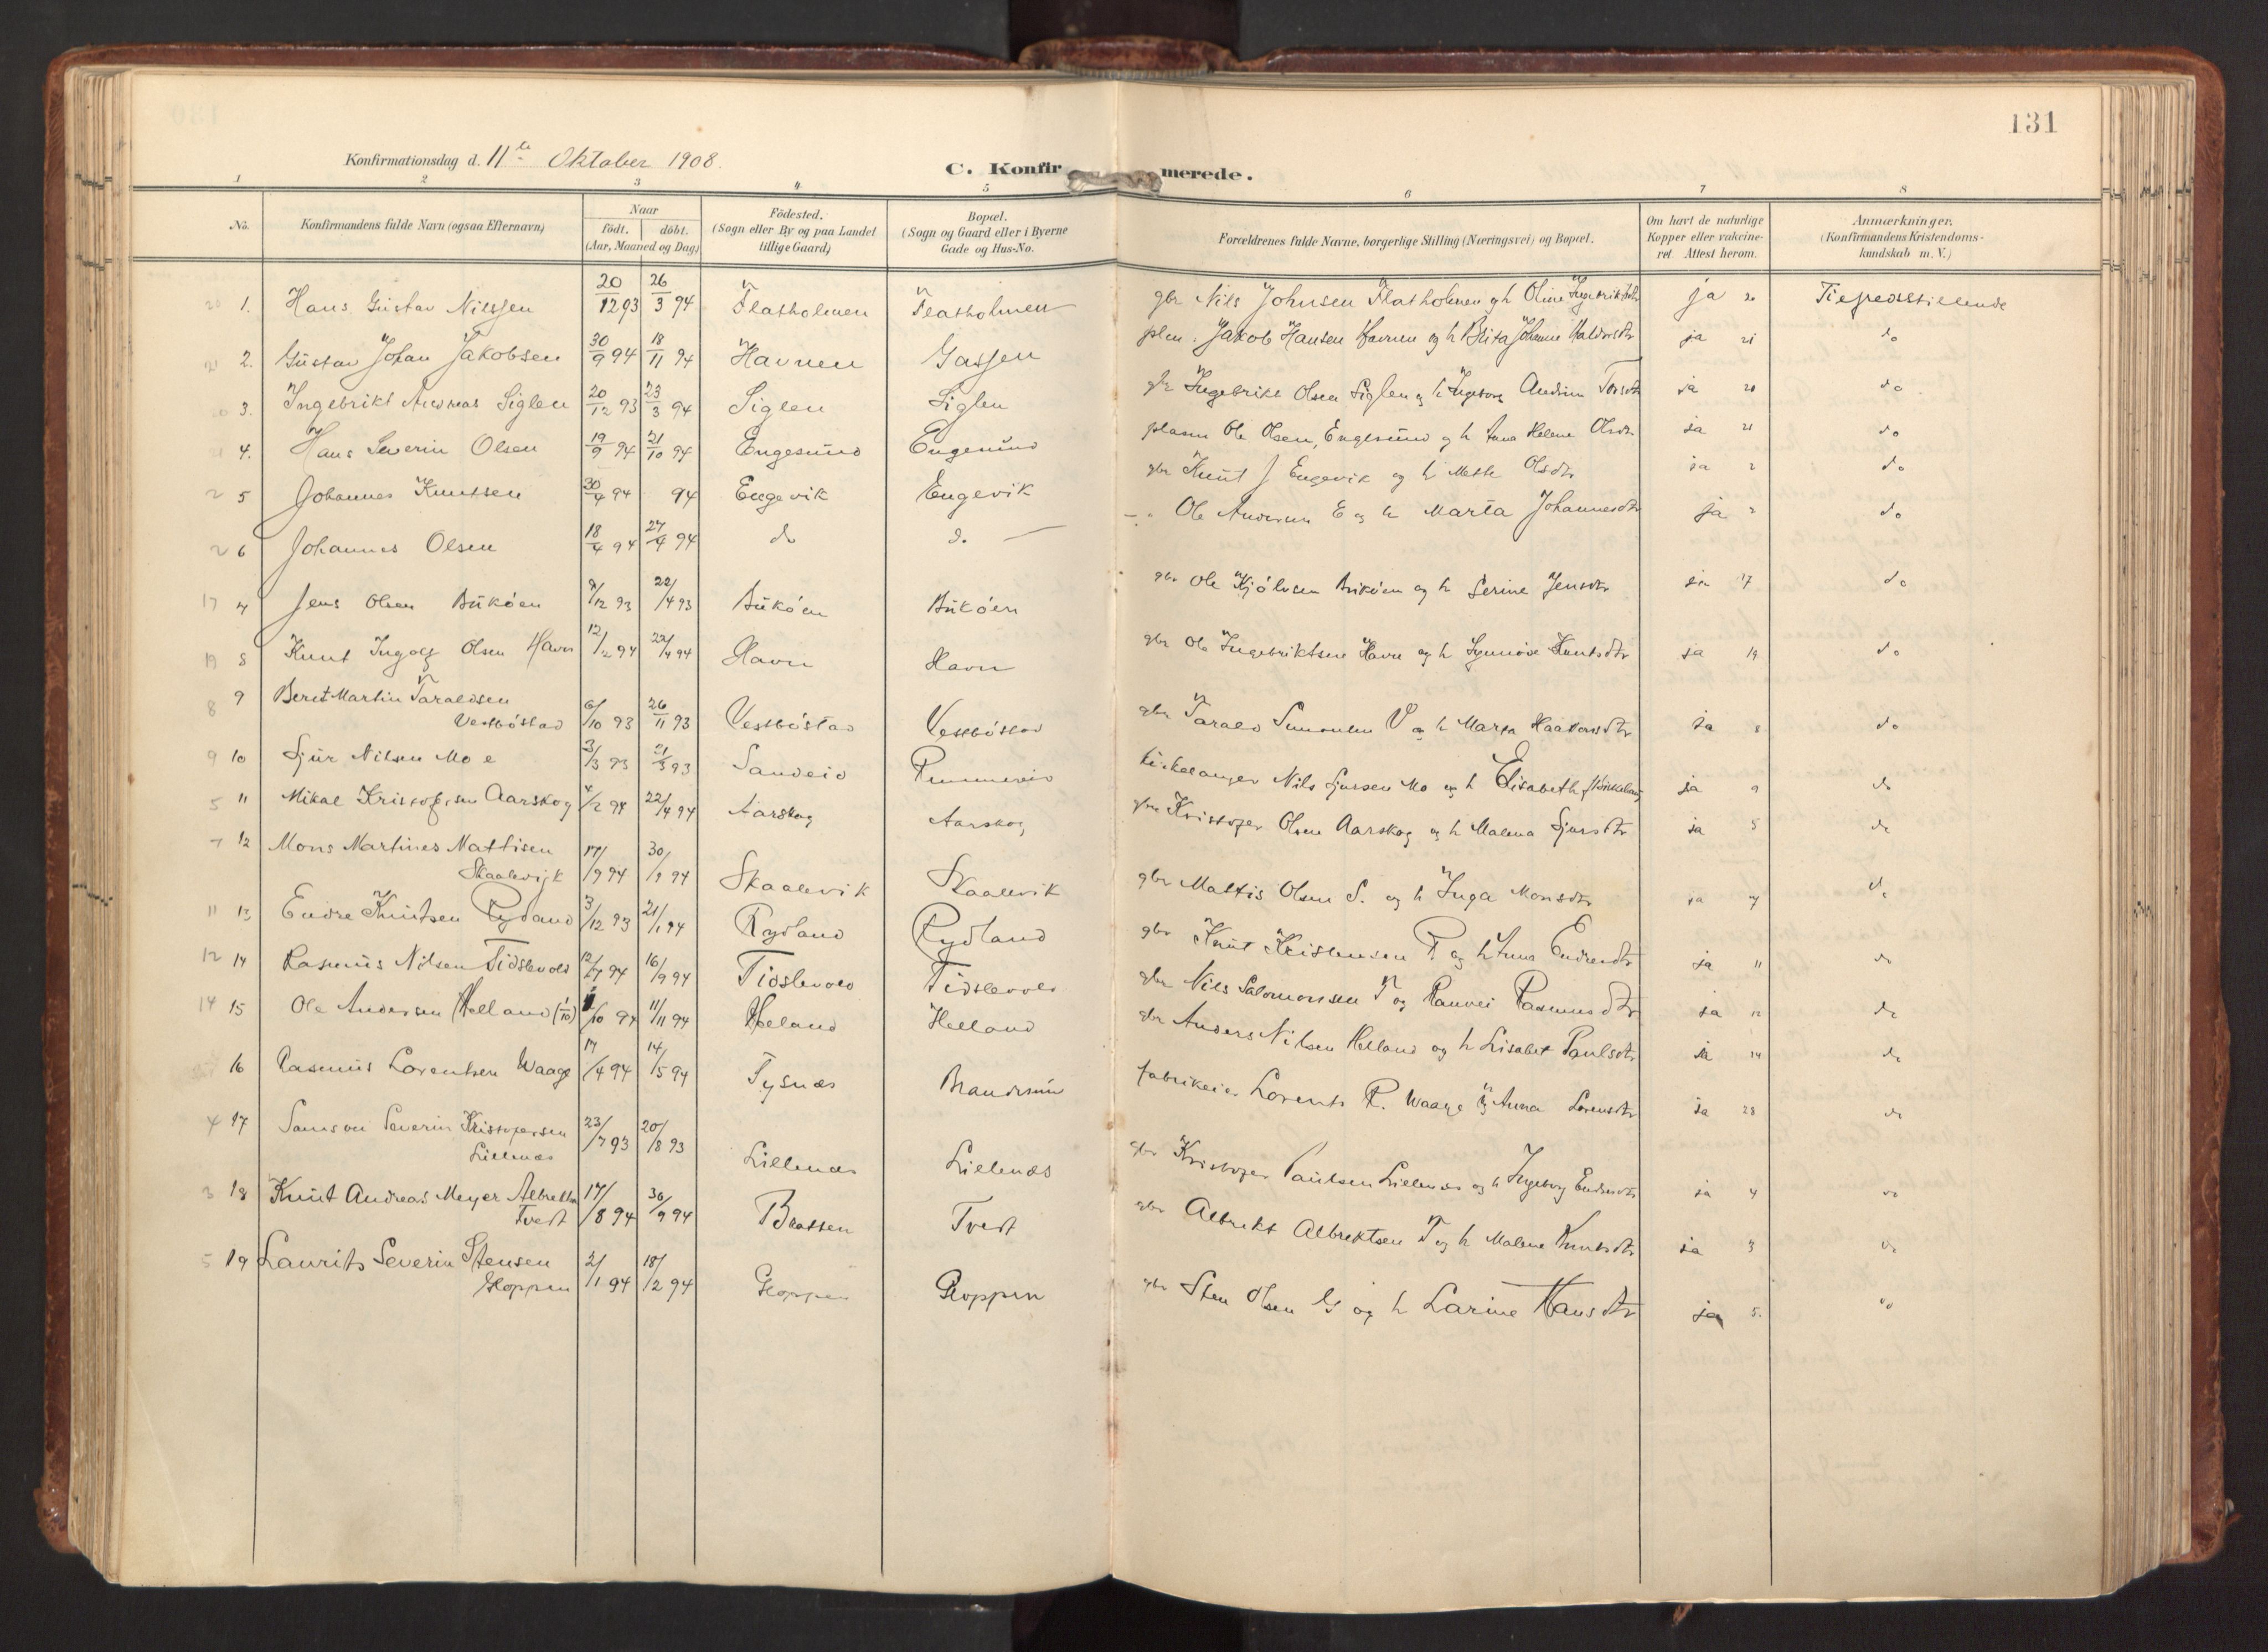 131
Konfirmationsdag d. 11te Oktober 1908.
C. Konfirmerede.
1 2 3 4 5 6 7 8
No. Konfirmandens fulde Navn (ogsaa Efternavn) Naar født. døbt. (Aar, Maaned og Dag) Fødested. (Sogn eller By og paa Landet tillige Gaard) Bopæl. (Sogn og Gaard eller i Byerne Gade og Hus-No. Forældrenes fulde Navne, borgerlige Stilling (Næringsvei) og Bopæl. Om havt de naturlige Kopper eller vakcineret. Attest herom. Anmærkninger. (Konfirmandens Kristendomskundskab m. V.)
20 1. Hans Gustav Nilssen 20/12 93 26/3 94 Flatholmen Flatholmen gbr Nils Johnsen Flatholmen og h Oline ja 20 Tilfredsstillende
21 2. Gustav Johan Jakobsen 30/9 94 18/11 94 Havnen Gassen Jakob Hansen Havnen og h Brita Johanne ja 21 do
3. Ingebrikt Andreas Siglen 20/12 93 23/3 94 Siglen Siglen gbr Ingebrikt Olsen Siglen og h Ingeborg ja 20 do
21 4. Hans Severin Olsen 19/9 94 21/10 94 Engesund Engesund plasm Ole Olsen, Engesund og h Anna Helene Olsdtr ja 21 do
2 5 Johannes Knutsen 94 94 Engevik Engevik gbr Knut J Engevik og h Mette Olsdtr ja 2 do
2 6 Johannes Olsen 18/4 94 94 do do — Ole Andersen E og h Marta Johannesdtr ja 2 do
17 7 Jens Olsen Bukøen /12 93 22/4 93 Bukøen Bukøen gbr Ole Kjølvsen Bukøen og h Serine Jensdtr ja 17 do
19 8 Knut Ingolf Olsen Havn 94 22/4 94 Havn Havn gbr Ole Ingebriktsen Havn og h Synnøve Knutsdtr ja 19 do
8 9 Beret Martin Taraldsen
Vestbøstad 6/10 93 26/11 93 Vestbøstad Vestbøstad gbr Tarald Simonsen V og h Marta Haakonsdtr ja 8 do
9 10 Sjur Nilsen Moe 3/3 93 21/3 93 Sandeid Rummereid Nils Sjursen Mo og h Elisabeth ja 9 do
5 11 Mikal Kristofersen Aarskog /2 94 22/4 94 Aarskog Aarskog gbr Kristofer Olsen Aarskog og h Malena Sjursdtr ja 5 do
7 12 Mons Martines Mattisen
Skaalevik 17/9 94 30/9 94 Skaalevik Skaalevik gbr Mattis Olsen S. og h Inga Monsdtr ja 7 do
11 13 Endre Knutsen Rydland 3/12 93 21/1 94 Rydland Rydland gbr Knut Kristensen R og h Anna Endresdtr ja 11 do
12 14 Rasmus Nilsen Tidslevold 94 16/9 94 Tidslevold Tidslevold gbr Nils Salomonsen T og Ranvei Rasmusdtr ja 12 do
14 15 Ole Andersen Helland (1/10) /10 94 11/11 94 Heland Helland gbr Anders Nilsen Helland og h Lisabet Paulsdtr ja 14 do
16 Rasmus Lorentsen Waage 17/4 94 14/5 94 Tysnes Brandesund fabrikeier Lorents R. Waage og Anna Lorensdtr ja 28 do
4 17 Samson Severin Kristofersen
Lillenæs 23/7 93 20/8 93 Lillenæs Lillenæs gbr Kristofer Paulsen Lillenæs og h Ingeborg Endresdtr ja 4 do
3 18 Knut Andreas Meyer
Tveit 17/8 94 30/9 94 Bratten Tveit gbr Albrekt Albrektsen T og h Malene Knutsdtr ja 3 do
5 19 Laurits Severin Stensen
Gloppen 2/1 94 18/2 94 Gloppen Gloppen gbr Sten Olsen G og h Larine Hansdtr ja 5. do